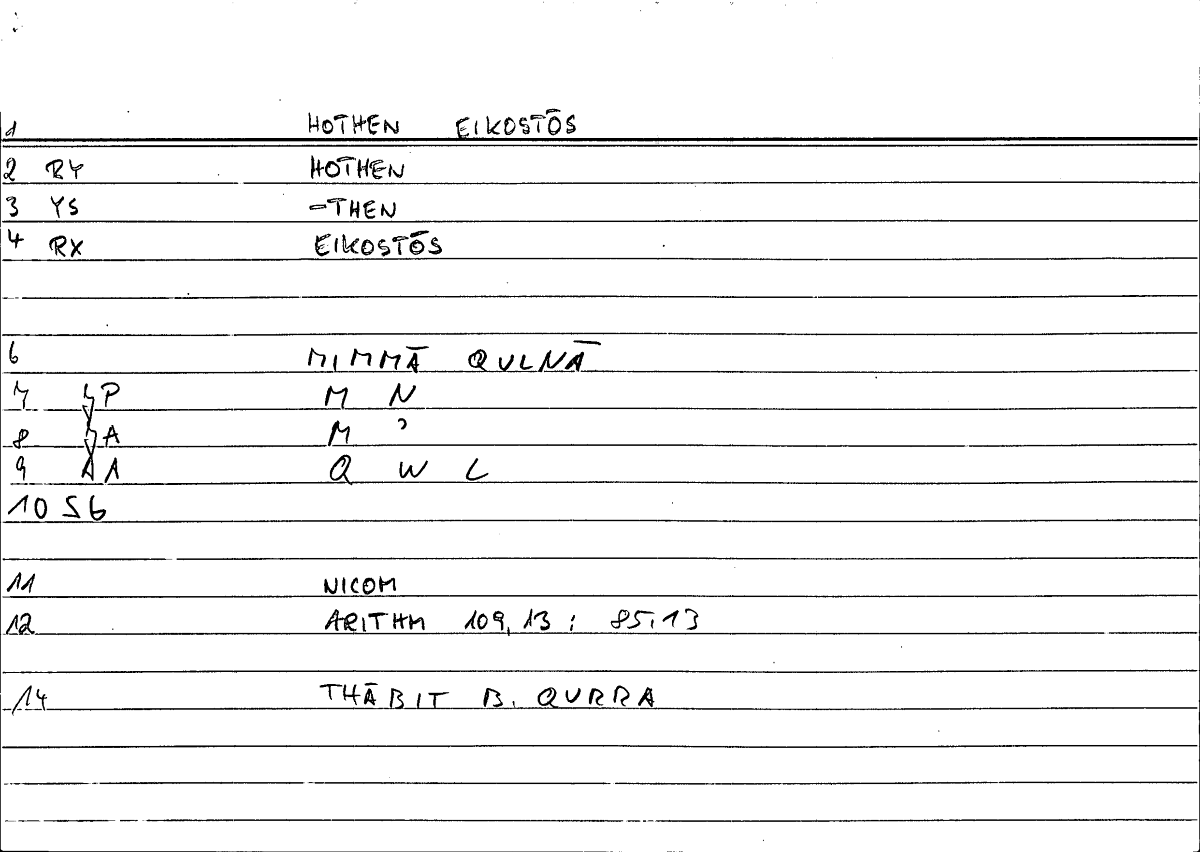 1 HOTHEN EIKOSTŌS
2 RY HOTHEN
3 YS -THEN
4 RX EIKOSTŌS
6 MIMMĀ QULNĀ
7 P M N
8 A M ʾ
9 AA Q W L
10 56
11 NICOM
12 ARITHM 109,13 : 85,13
14 THĀBIT B. QURRA